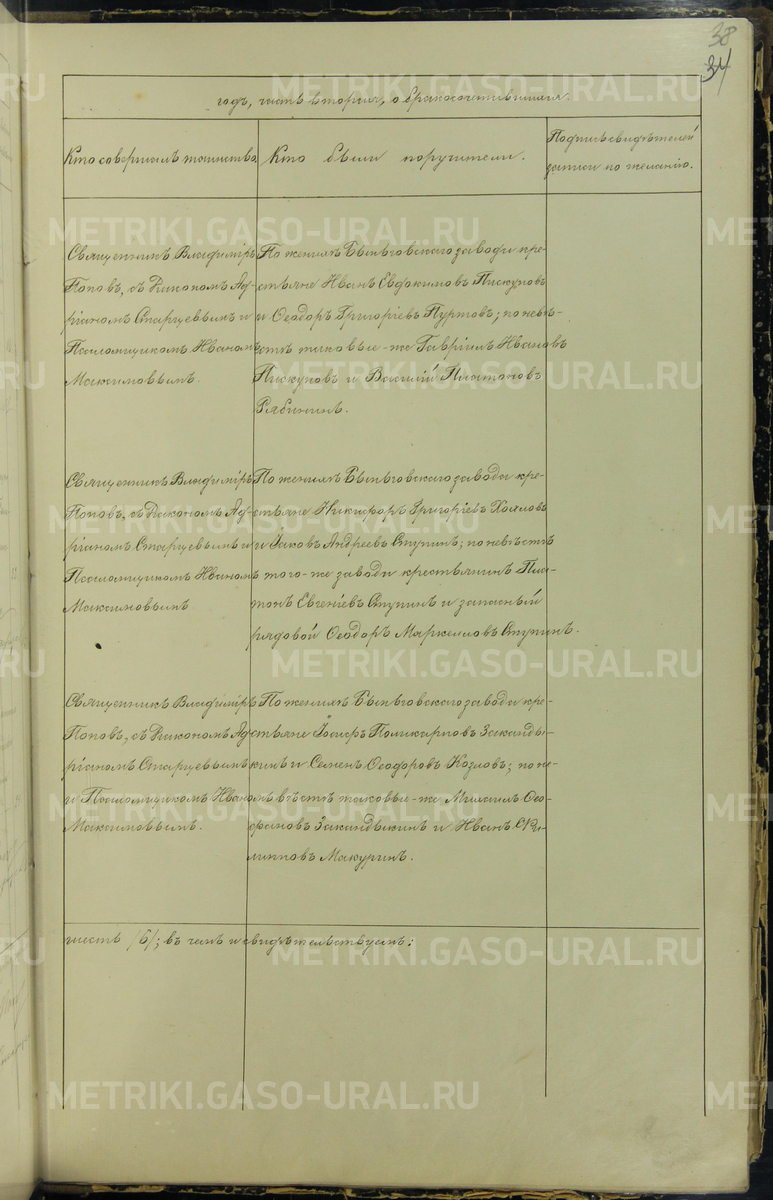 38
34
годъ, часть вторая, о бракосочетавшихся.
Кто совершалъ таинство
Кто были поручители.
Подпись свидѣтелей
записи по желанію.
Священникъ Владиміръ
Поповъ, съ Діакономъ Ад-
ріаномъ Старцевымъ и
Псаломщикомъ Иваномъ
Максимовымъ.
По женихѣ Быньговскаго завода кре-
стьяне Иванъ Евдокимовъ Пискуновъ
и Ѳеодоръ Григоріевъ Пуртовъ; по невѣ-
стѣ таковые-же Гавріилъ Ивановъ
Пискуновъ и Василій Платоновъ
Рябининъ.
Священникъ Владиміръ
Поповъ, съ Діакономъ Ад-
ріаномъ Старцевымъ и
Псаломщикомъ Иваномъ
Максимовымъ
По женихѣ Быньговскаго завода кре-
стьяне Никифоръ Григоріевъ
и Іаковъ Андреевъ Ступинъ; по невѣстѣ
того-же завода крестьянинъ Пла-
тонъ Евгеніевъ Ступинъ и запасный
рядовой Ѳеодоръ Маркелловъ Ступинъ.
Священникъ Владиміръ
Поповъ, съ Діакономъ Ад-
ріаномъ Старцевымъ
и Псаломщикомъ Иваномъ
Максимовымъ.
По женихѣ Быньговскаго завода кре-
стьяне Поликарповъ Заканды-
кинъ и Семенъ Ѳеодоровъ Козловъ; по не-
вѣстѣ таковые-же Михаилъ Ѳео-
фановъ Закандыкинъ и Иванъ Фи-
липповъ Макуринъ.
шесть /6/; въ чемъ и свидѣтельствуемъ:
METRIKI.GASO-URAL.RU